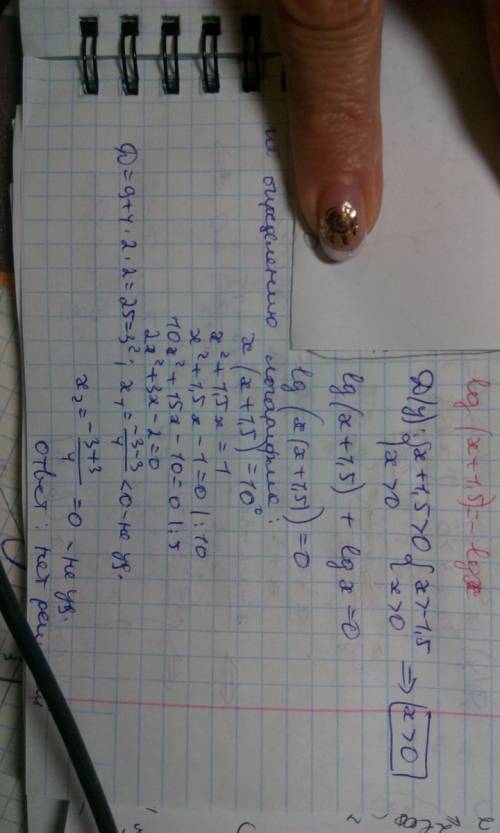 lg(x+1,5) = -lgx
D(y): { x+1,5>0 { x>-1,5 ⇒ x>0
{ x>0 { x>0
lg(x+1,5) + lg x = 0
lg(x(x+1,5)) = 0
по определению логарифма:
x(x+1,5) = 10⁰
x² + 1,5x = 1
x² + 1,5x - 1 = 0 |·10
10x² + 15x - 10 = 0 |:5
2x² + 3x - 2 = 0
D = 9+4·2·2 = 25 = 3²; x₁ = (-3-3)/4 < 0 - не уд.
x₂ = (-3+3)/4 = 0 - не уд.
Ответ: нет